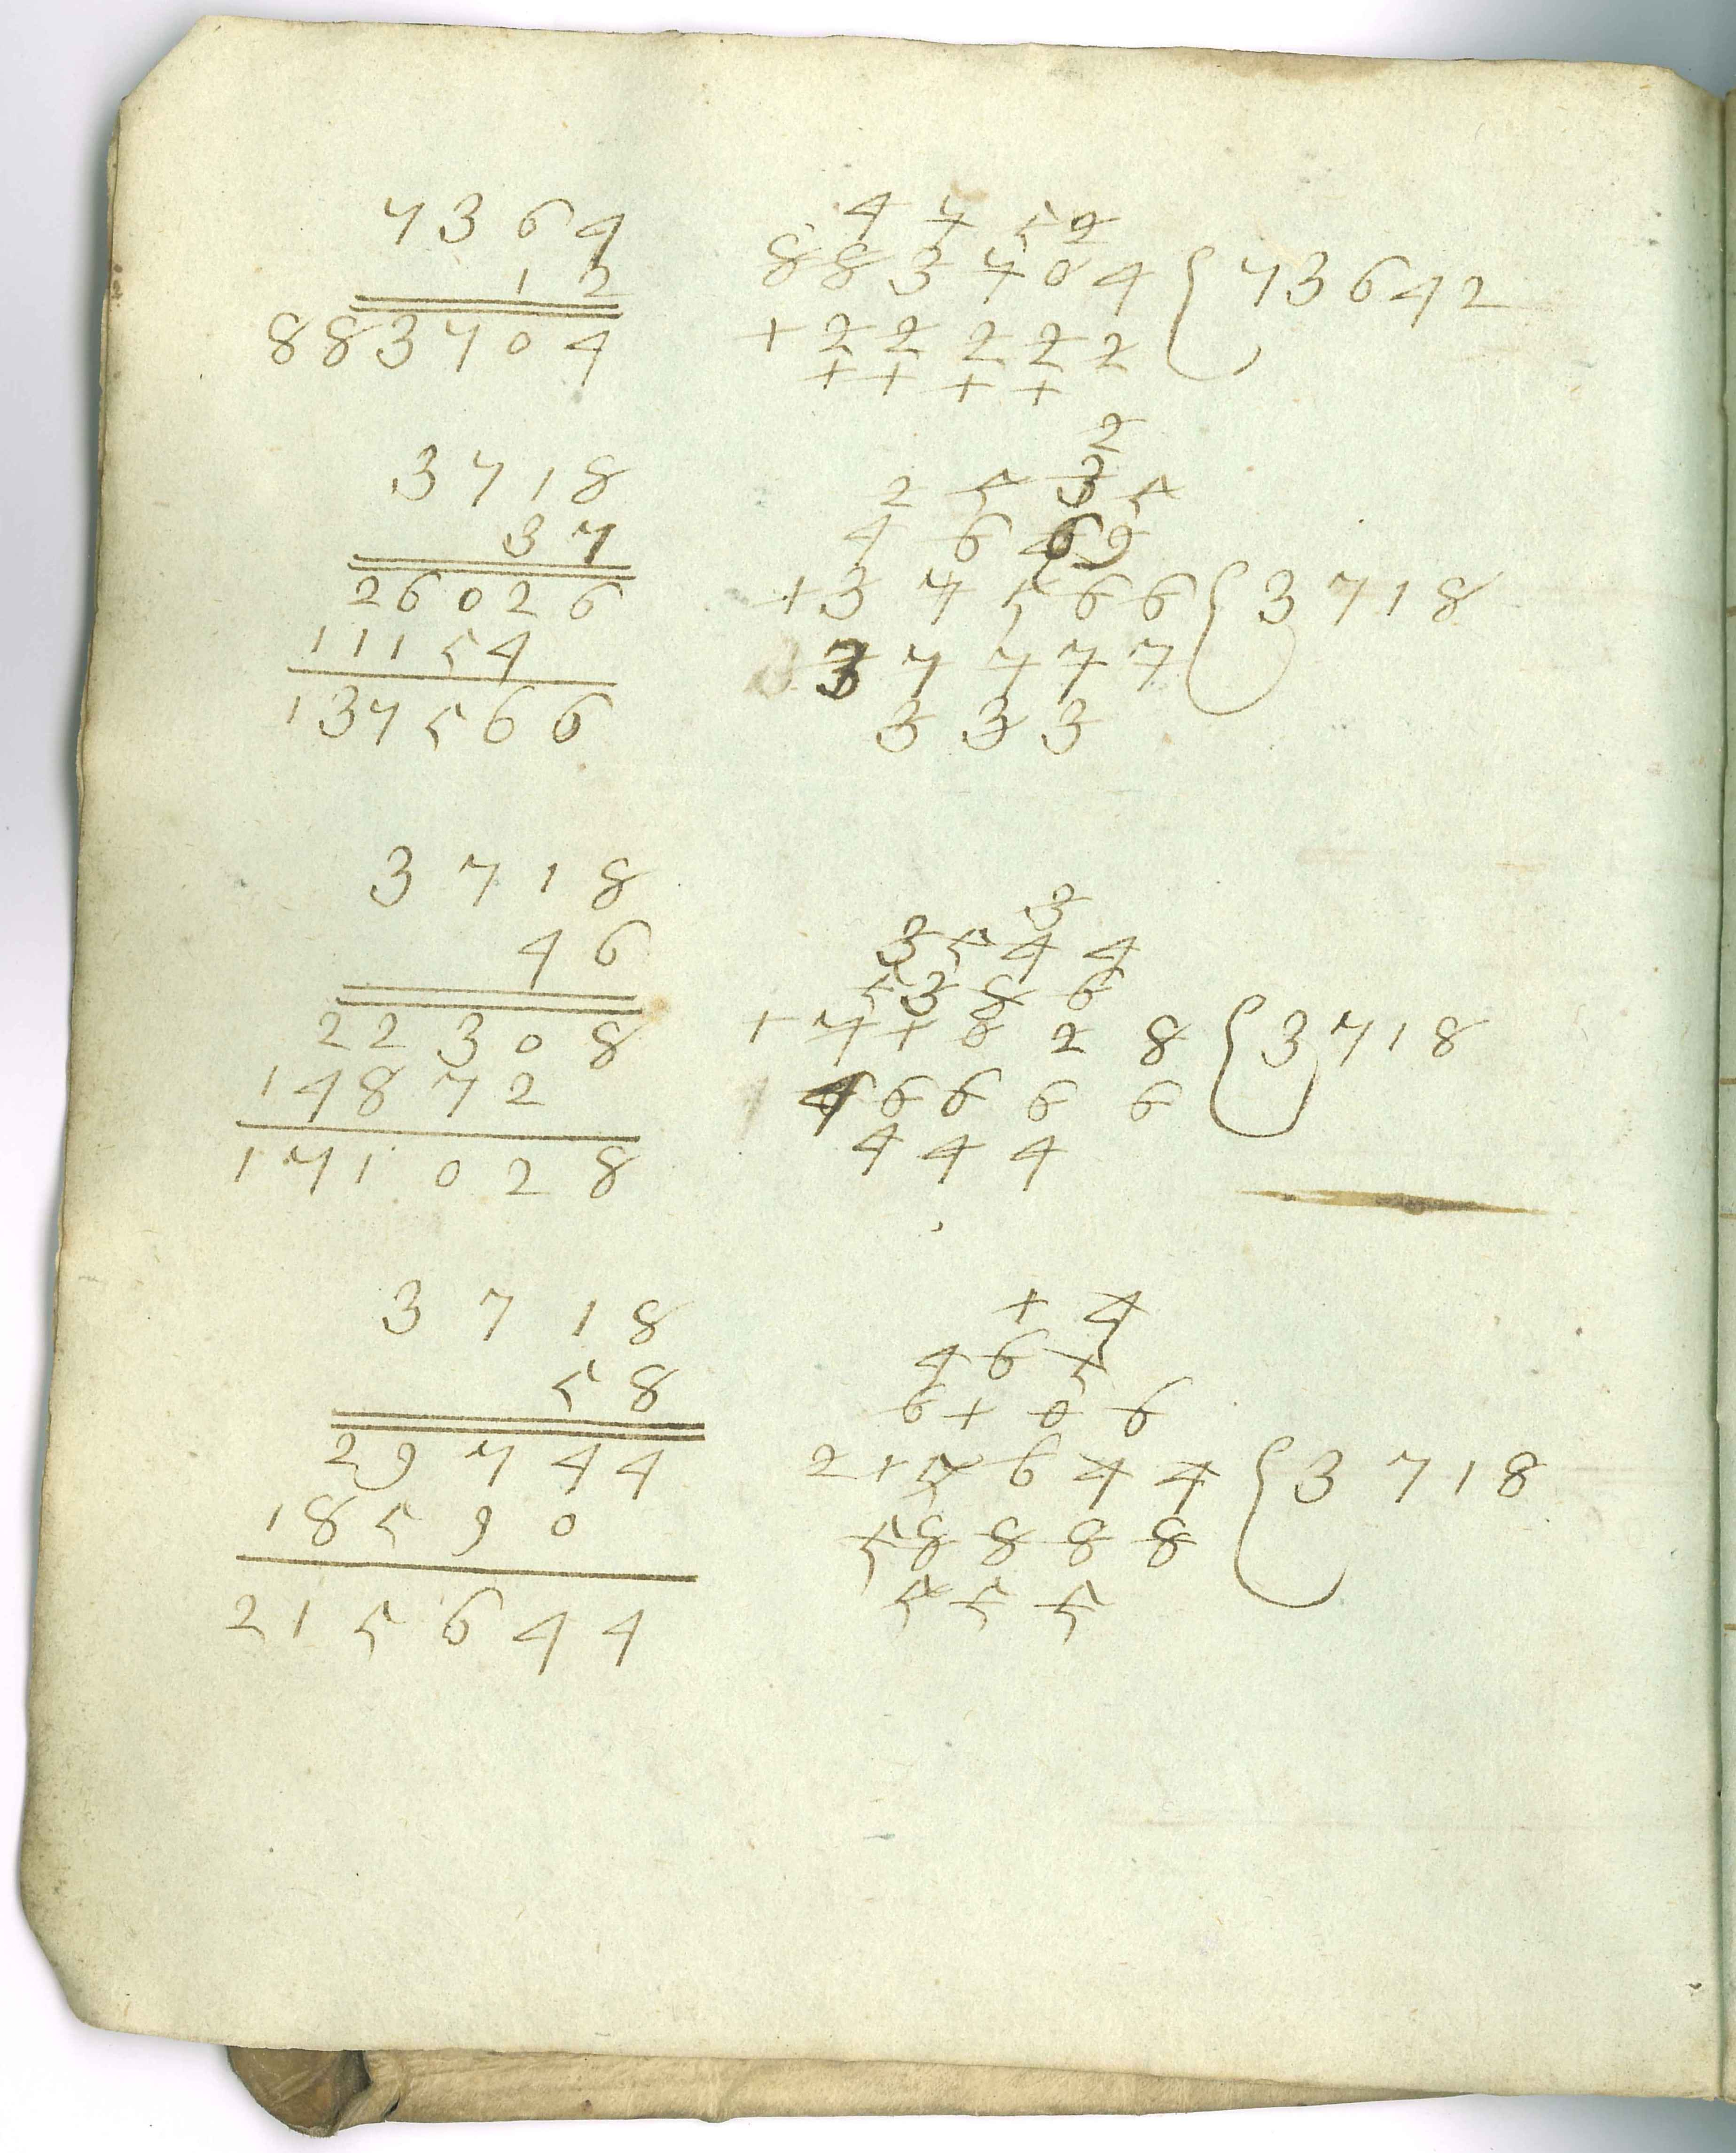 7364
12
883704
4 7 5 2
883704 { 73642
1 2 2 2 2 2
1 1 1 1
3718
37
26026
11154
137566
2
2 5 3 5
4 6 6 9
137566 { 3718
3 7 7 7 7
3 3 3
3718
46
22308
14872
171028
3
3 5 4 4
5 3 8 6
171028 { 3718
4 6 6 6 6
4 4 4
3718
58
29744
18590
215644
1 4
4 6 5
6 1 0 6
215644 { 3718
5 8 8 8 8
5 5 5